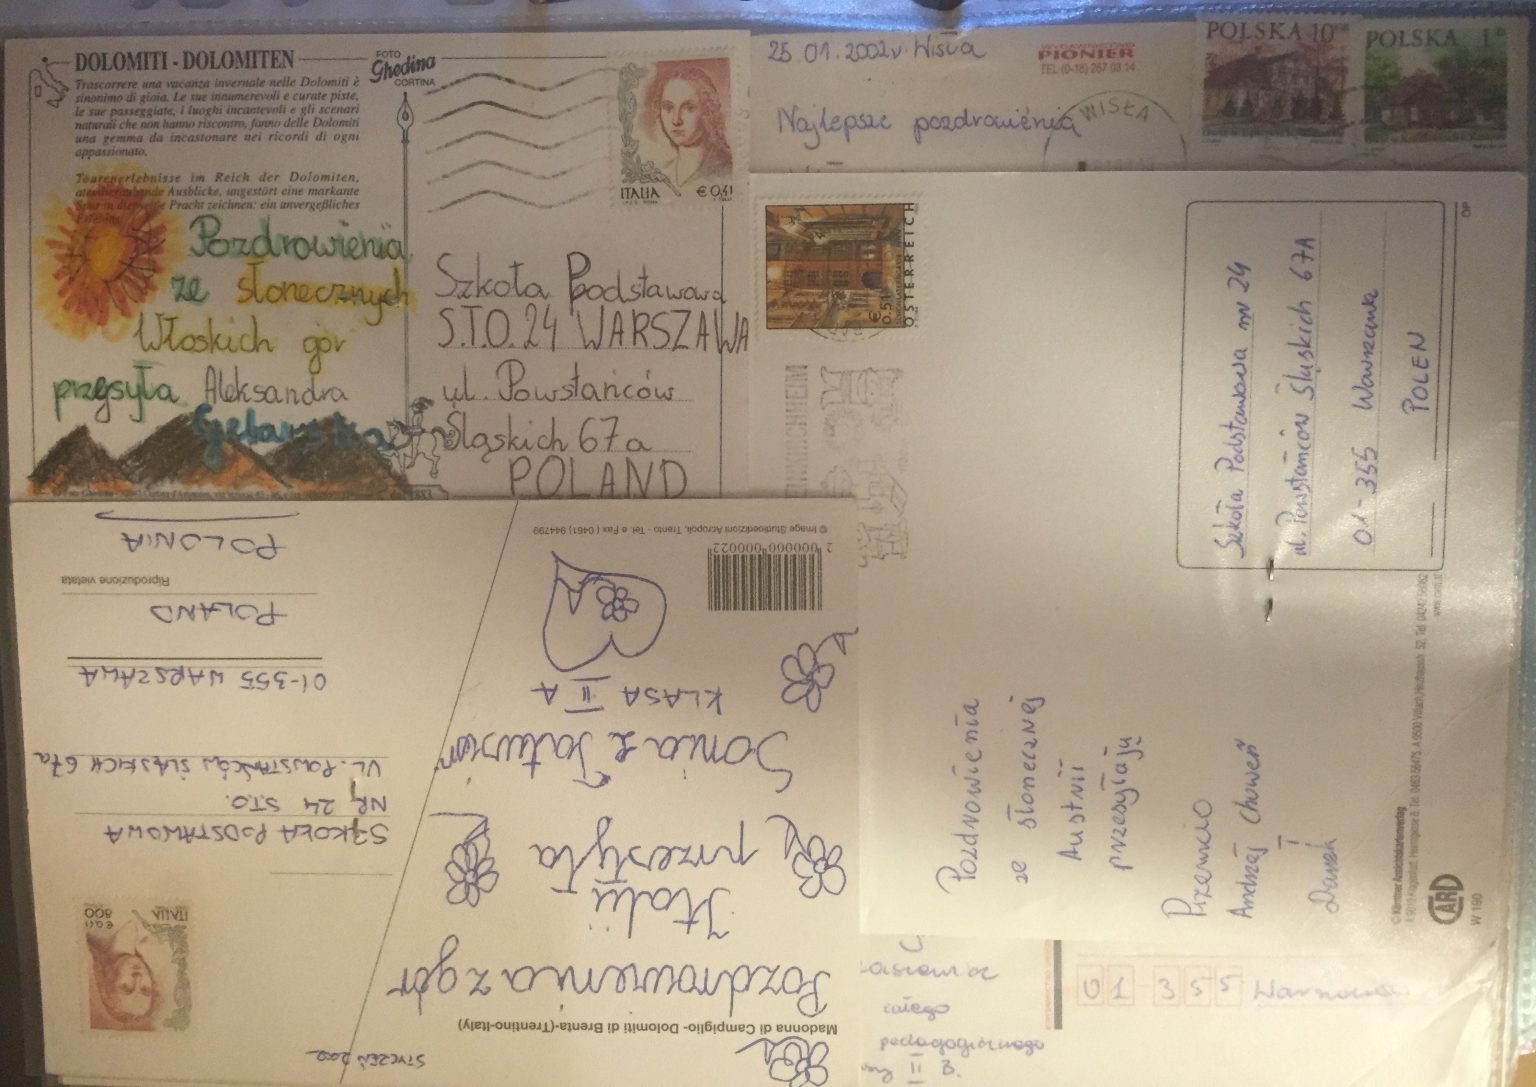 DOLOMITI - DOLOMITEN
Trascorrere una vacanza invernale nelle Dolomiti è
sinonimo di gioia. Le sue innumerevoli e curate piste,
le sue passeggiate, i luoghi incantevoli e gli scenari
naturali che non hanno riscontro, fanno delle Dolomiti
una gemma da incastonare nei ricordi di ogni
appassionato.
Tourenerlebnisse im Reich der Dolomiten,
atemberaubende Ausblicke, ungestört eine markante
Spur in die weiße Pracht zeichnen: ein unvergeßliches
FOTO
Ghedina
CORTINA
ITALIA
€ 0,41
Pozdrowienia
ze słonecznych
Włoskich gór
przesyła Aleksandra
Szkoła Podstawowa
S.T.O. 24 WARSZAWA
ul. Powstańców
Śląskich 67a
POLAND
25.01.2002r. Wisła
Najlepsze pozdrowienia
PIONIER
TEL (0-18) 267 03 14
WISŁA
POLSKA 10
POLSKA 1
ÖSTERREICH
€ 0.51
Szkoła Podstawowa nr 24
ul. Powstańców Śląskich 67A
01-355 Warszawa
POLEN
Pozdrowienia
ze słonecznej
Austrii
przesyłają
Przemcio
Andrzej Choweń
i
Darek
CARD
W 190
Madonna di Campiglio- Dolomiti di Brenta-(Trentino-Italy)
STYCZEŃ 2002
Pozdrowienia z gór
Italii
przesyła
Sonia z Tatusiem
KLASA II A
2 000000 000022
© Image Studioedizioni Acropoli, Trento - Tel. e Fax (0461) 944799
ITALIA
800
€ 0,41
SZKOŁA PODSTAWOWA
NR 24 S.T.O.
UL. POWSTAŃCÓW ŚLĄSKICH 67a
01-355 WARSZAWA
POLAND
Riproduzione vietata
POLONIA
całego
pedagogicznego
II B.
01-355 Warszawa